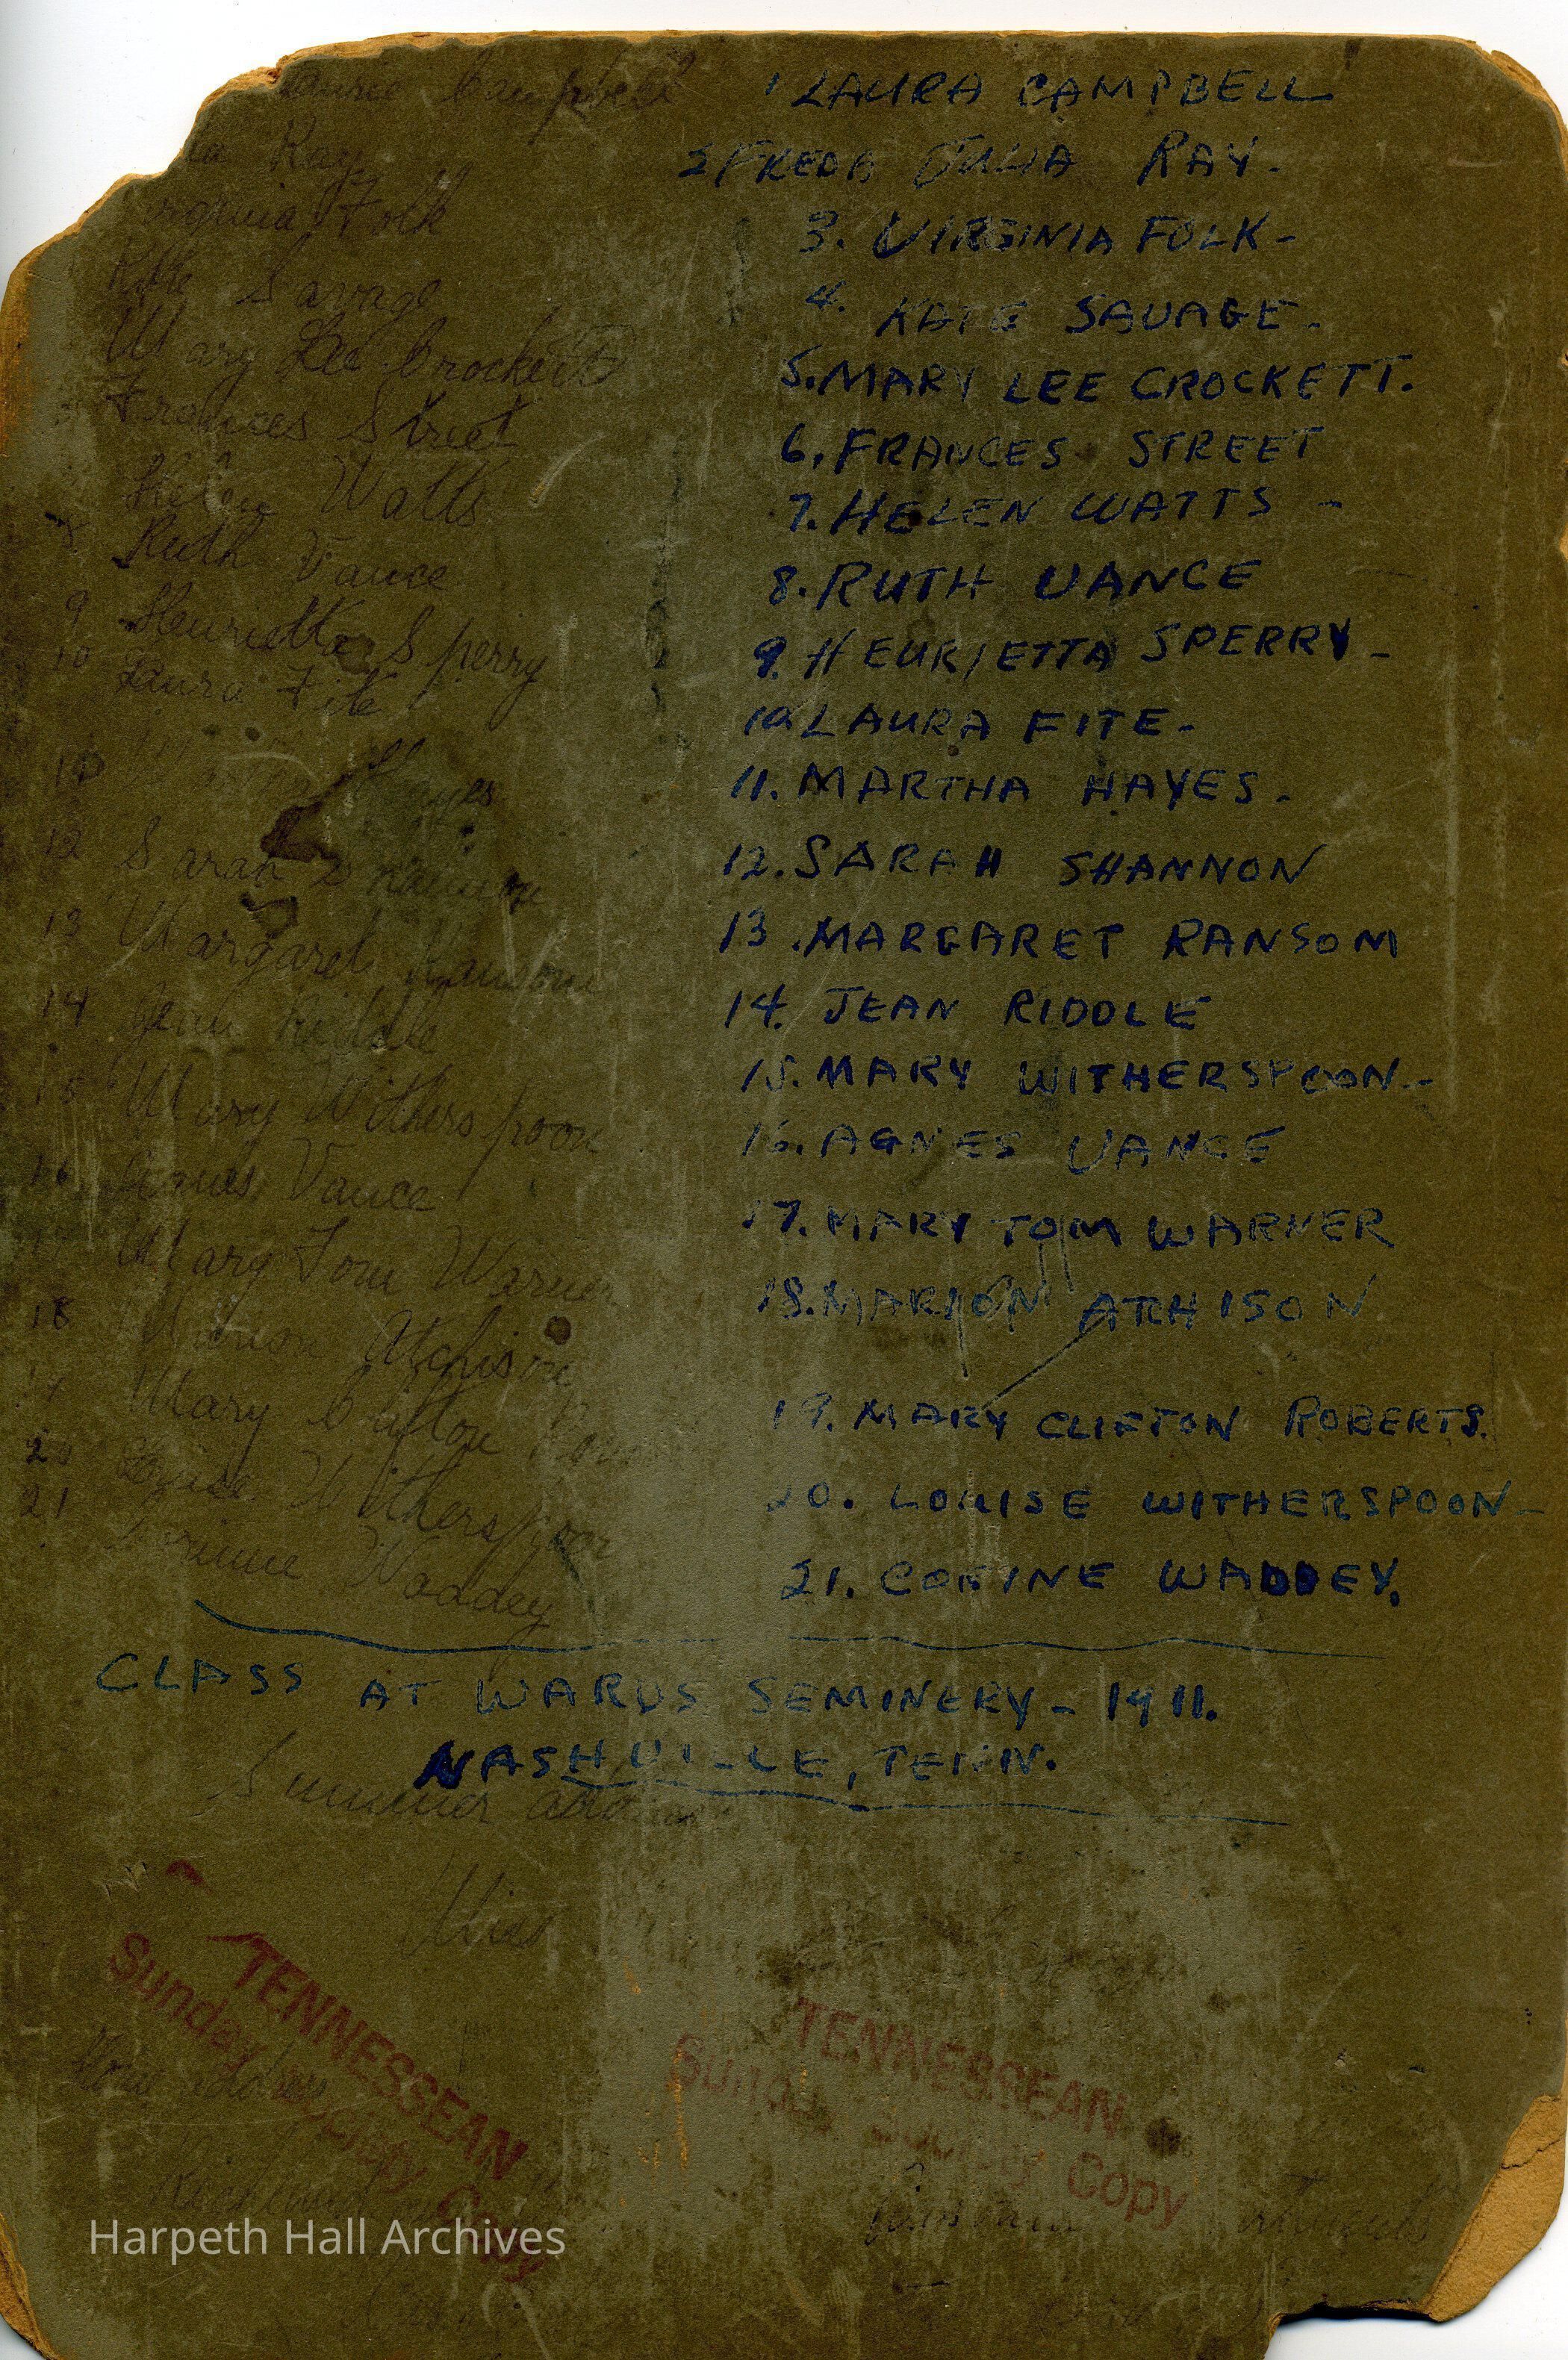 Laurie Campbell
Ray
Virginia Folk
Kate Savage
Mary Lee Crockett
Frances Street
Helen Watts
8 Ruth Vance
9 Henrietta Sperry
10 Laura Fite
Hayes
12 Sarah Shannon
13 Margaret Ransom
14 Jean Riddle
15 Mary Witherspoon
16 Agnes Vance
Mary Tom Warner
18 Marion Atchison
Mary Clifton
Louise Witherspoon
21 Corinne Waddey
1 LAURA CAMPBELL
2 FREDA JULIA RAY.
3. VIRGINIA FOLK-
4. KATE SAVAGE-
5. MARY LEE CROCKETT.
6. FRANCES STREET
7. HELEN WATTS -
8. RUTH VANCE
9. HENRIETTA SPERRY-
10. LAURA FITE-
11. MARTHA HAYES.
12. SARAH SHANNON
13. MARGARET RANSOM
14. JEAN RIDDLE
15. MARY WITHERSPOON-
16. AGNES VANCE
17. MARY TOM WARNER
18. MARION ATCHISON
19. MARY CLIFTON ROBERTS.
20. LOUISE WITHERSPOON-
21. CORINE WADDEY.
CLASS AT WARDS SEMINERY - 1911.
NASHVILLE, TENN.
Summer
Miss
TENNESSEAN
Sunday Copy
TENNESSEAN
Copy
Home address
Harpeth Hall Archives